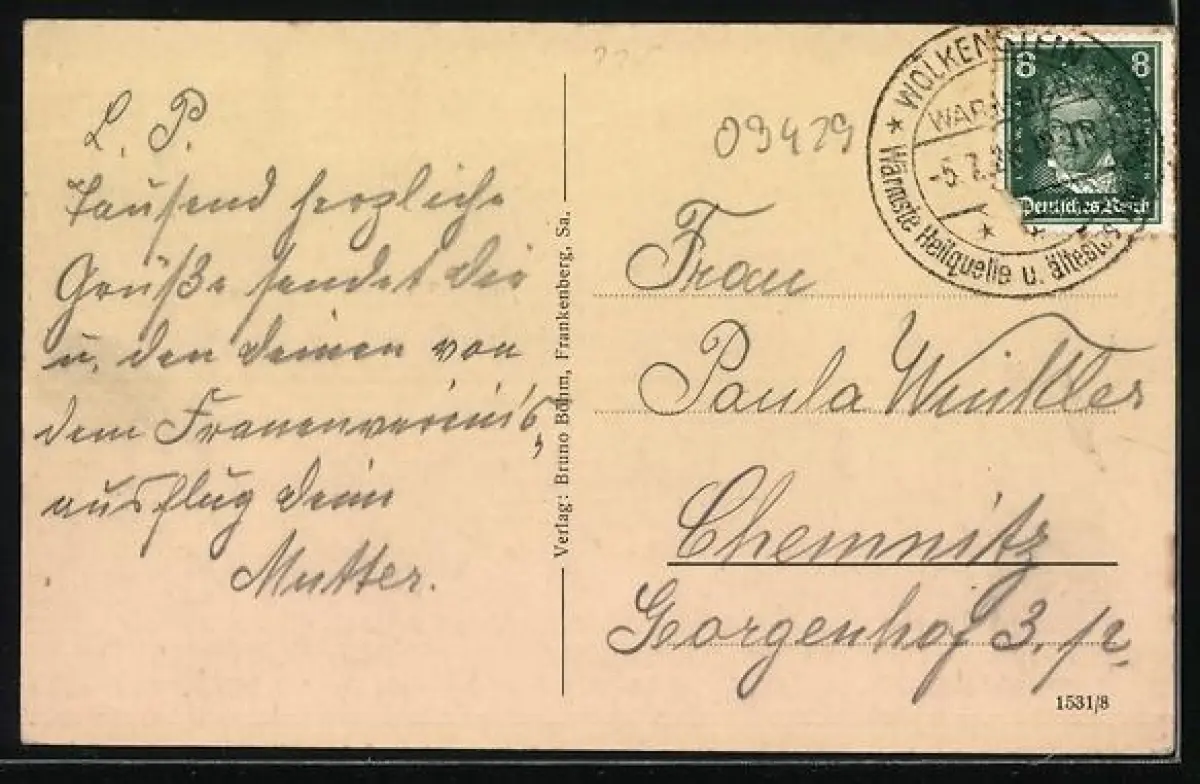 L. P.
Tausend herzliche
Grüße sendet dir
u. den deinen von
dem Frauenvereins,
ausflug deine
Mutter.
Verlag: Bruno Böhm, Frankenberg, Sa.
09429
★ WOLKENSTEIN
WARMBAD
-5.7.
★ Wärmste Heilquelle u. ältest.
8 8
Deutsches Reich
Frau
Paula Winkler
Chemnitz
Georgenhof 3. pr.
1531/8